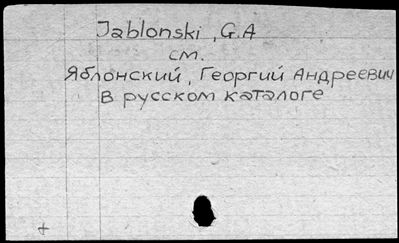 Jablonski, G.A
см.
Яблонский, Георгий Андреевич
в русском каталоге